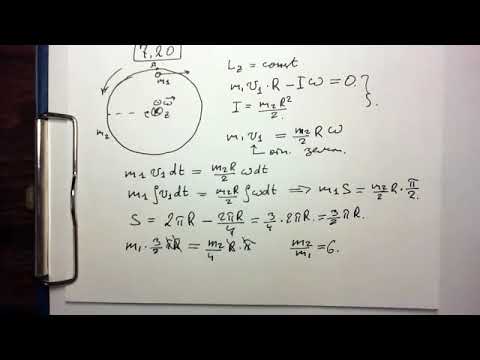 7.20
A
m₁
m₂
C
ω⃗
z
L_z = const
m₁v₁·R − Iω = 0.
I = m₂R²/2.
m₁v₁ = m₂/2 Rω
отн. земли.
m₁v₁dt = m₂R/2 ωdt
m₁∫v₁dt = m₂R/2 ∫ωdt ⟹ m₁S = m₂/2 R·π/2.
S = 2πR − 2πR/4 = 3/4·2πR = 3/2 πR.
m₁·3/2 πR = m₂/4 R·π   m₂/m₁ = 6.